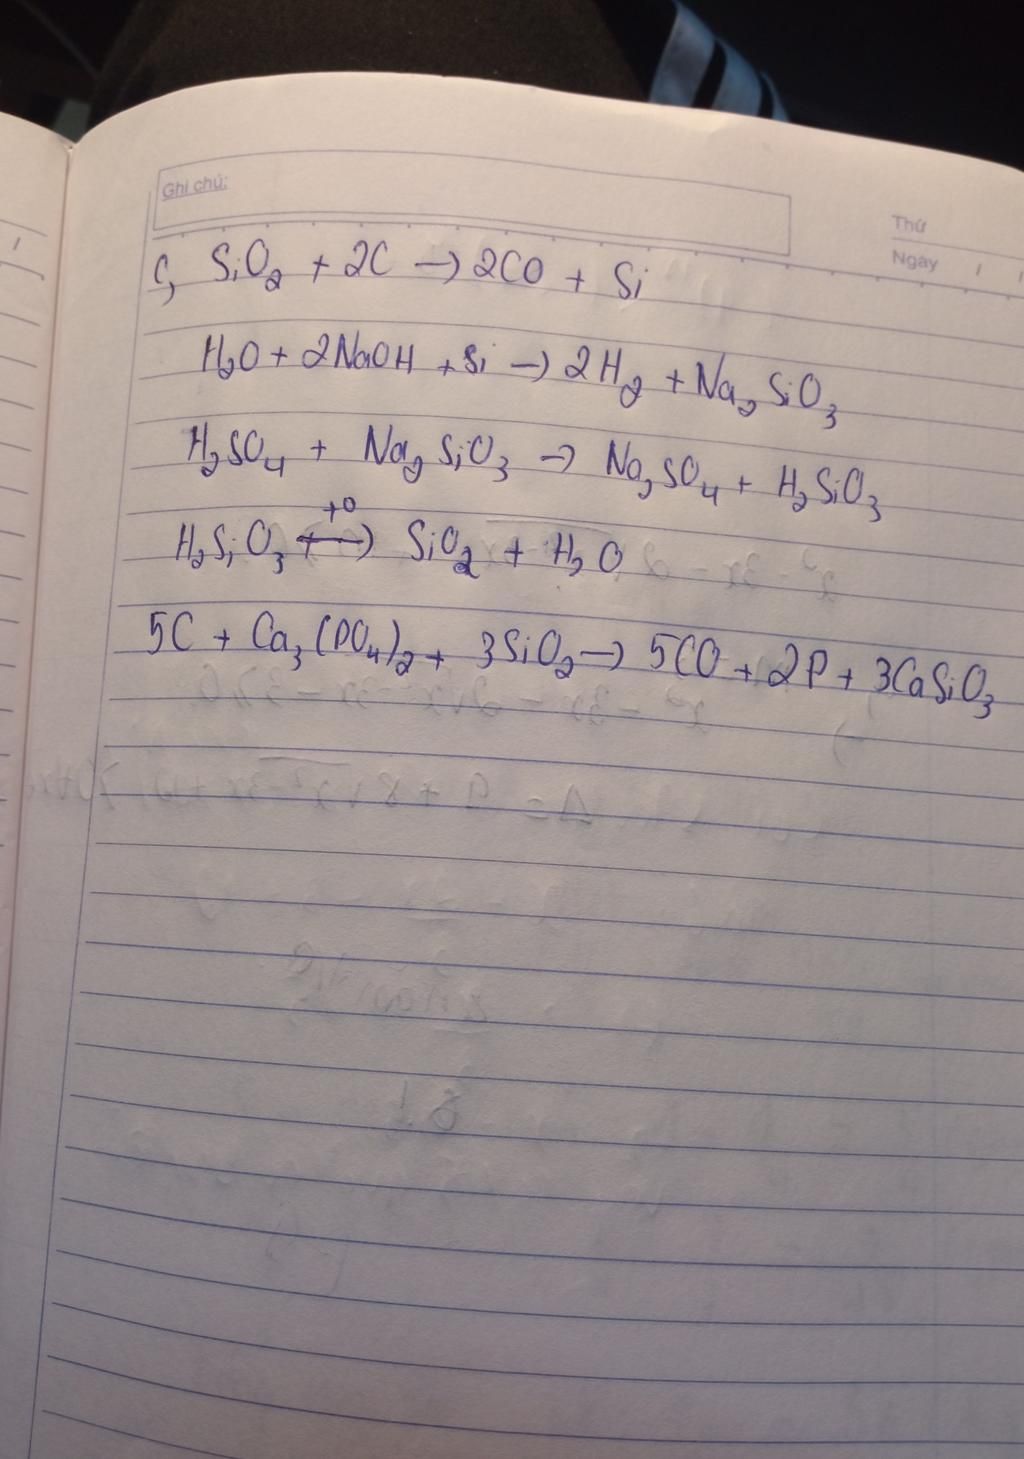 Ghi chú:
Thứ
Ngày / /
c, SiO₂ + 2C → 2CO + Si
H₂O + 2NaOH + Si → 2H₂ + Na₂SiO₃
H₂SO₄ + Na₂SiO₃ → Na₂SO₄ + H₂SiO₃
t°
H₂SiO₃ ⟷ SiO₂ + H₂O
5C + Ca₃(PO₄)₂ + 3SiO₂ → 5CO + 2P + 3CaSiO₃